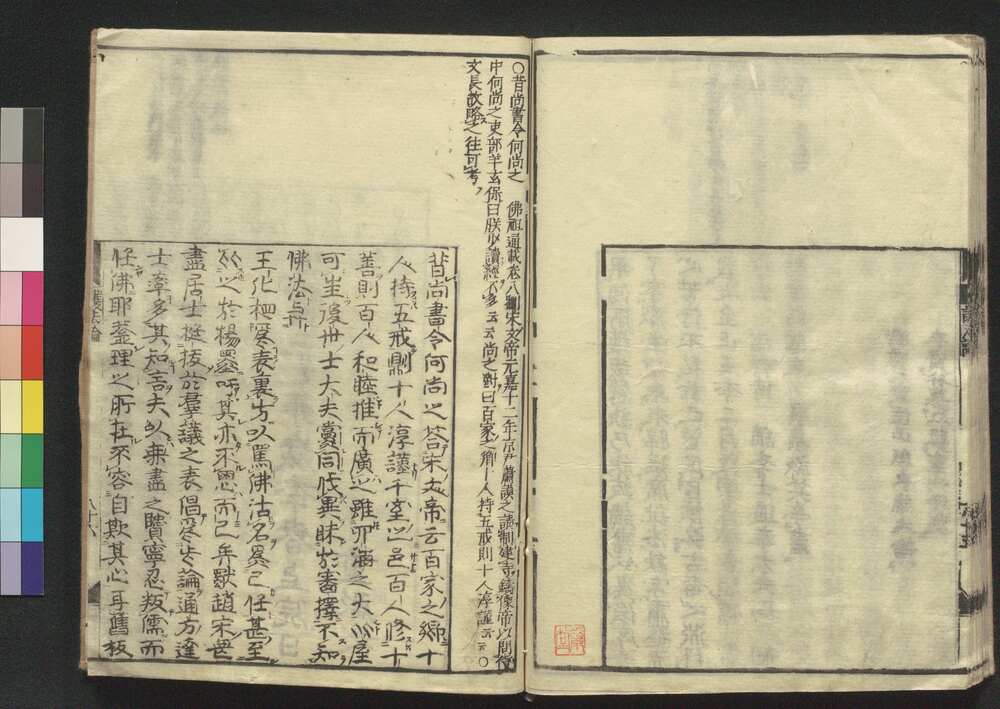 ○昔尚書令何尚之 佛祖通載卷八劉宋文帝元嘉十二年京尹蕭謨之請制建寺鑄像帝以問侍
中何尚之吏部羊玄保曰朕少讀經不多云云尚之對曰百家之鄉十人持五戒則十人淳謹云云○
文長故略之往可考
昔尚書令何尚之答宋文帝云百家之鄉十
人持五戒則十人淳謹千室之邑百人修十
善則百人和睦推而廣之雖四海之大比屋
可生後世士大夫黨同伐異昧於審擇不知
佛法與
王化相為表裏方以罵佛沽名為己任甚至
比之於楊墨吁其亦不思而已矣獣趙宋無
盡居士挺拔於羣議之表倡為此論通方達
士率多其知言夫以無盡之贖寧忍叛儒而
任佛耶蓋理之所在不容自欺其心耳舊板
護法論